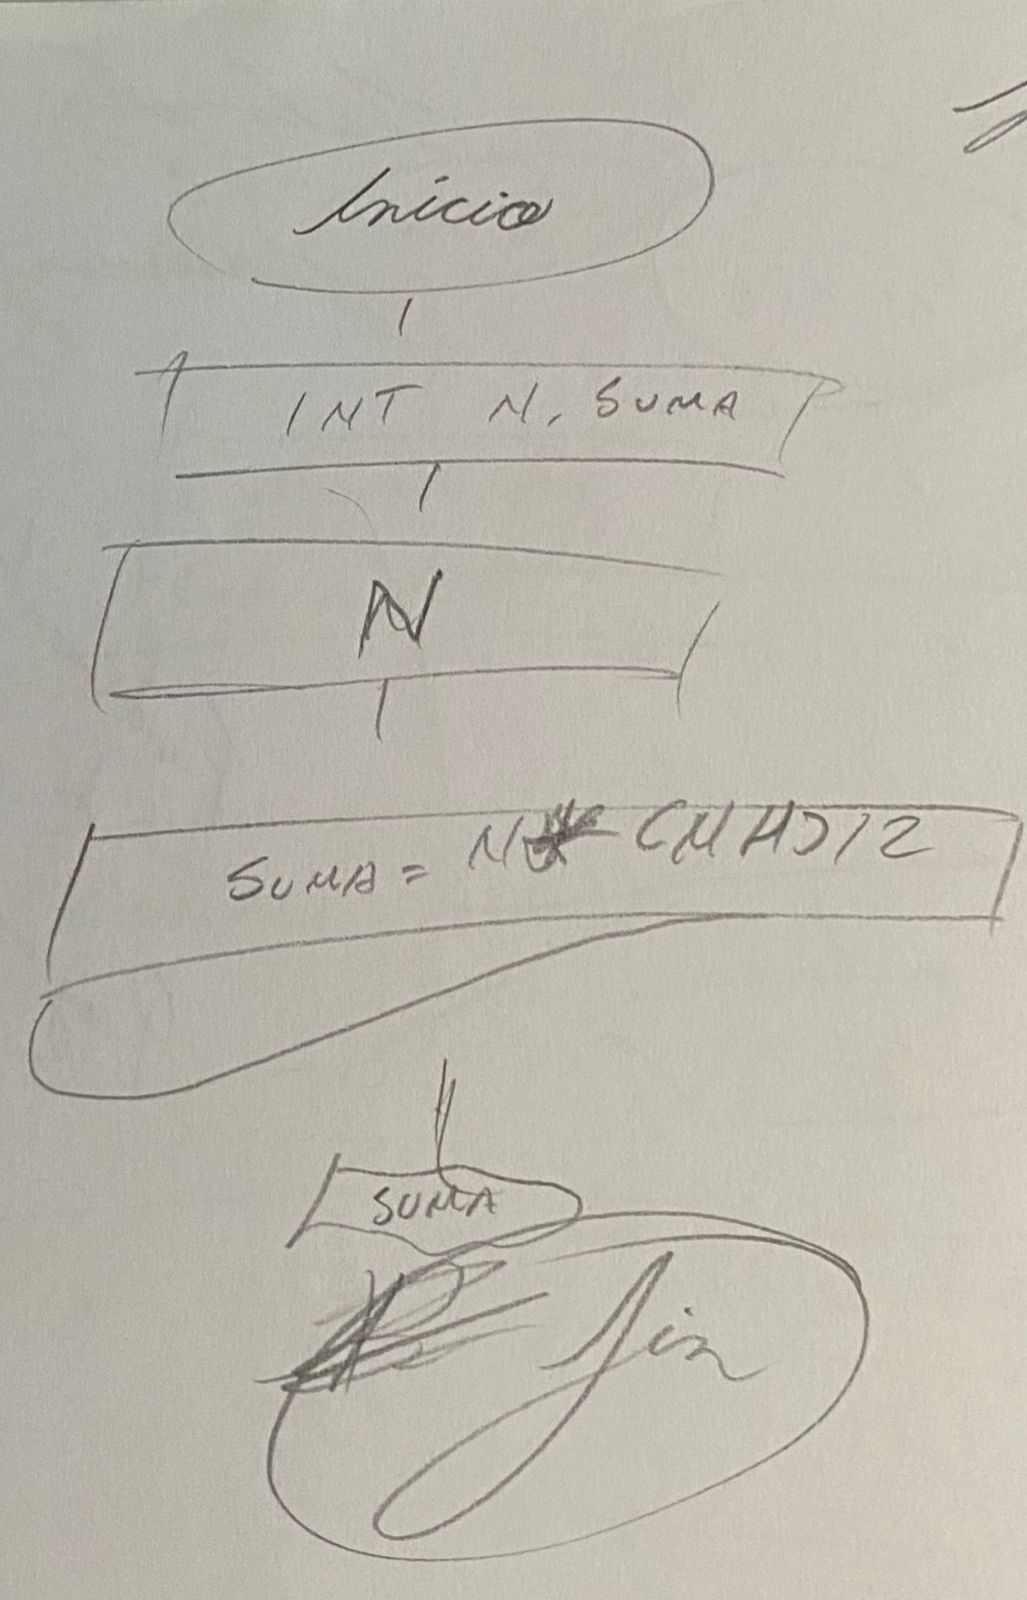 Inicio
INT N, SUMA
N
SUMA = N* (N+1)/2
SUMA
Fin